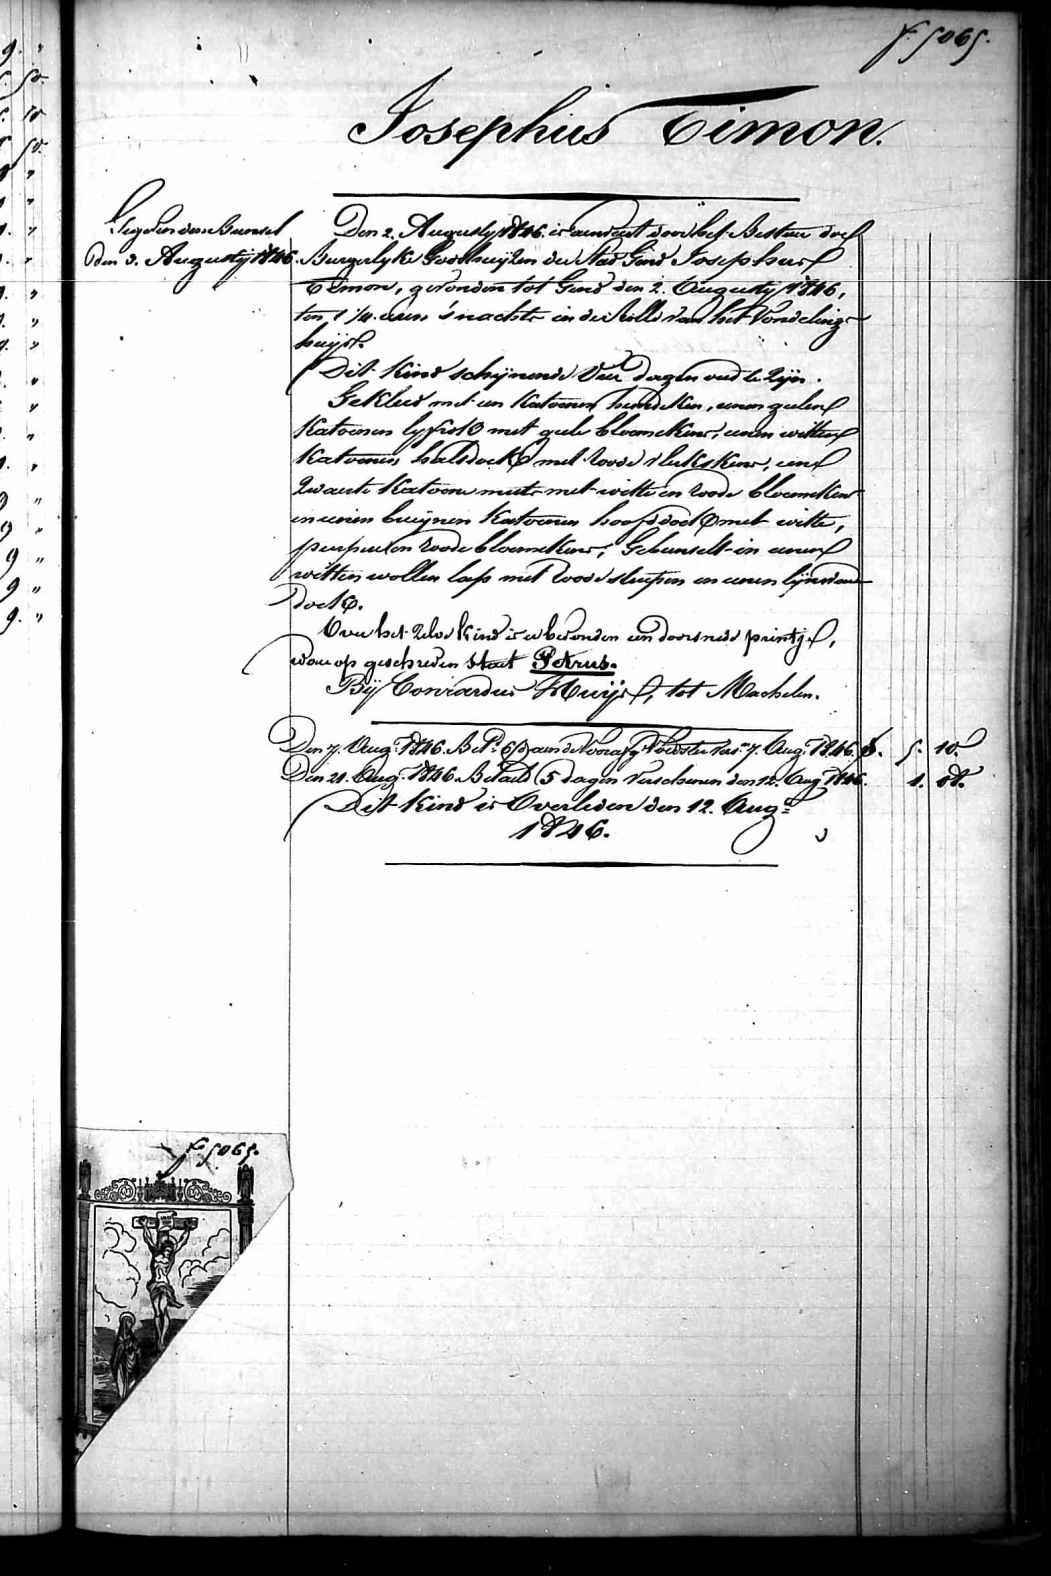 f. 5065.
Josephus Timon.
Gegeven den Bunsel
den 3. Augusty 1846.
Den 2. Augusty 1846. is aenveert door het Bestuer der
Burgerlyke Godshuijzen der Stad Gend Josephus
Timon, gevonden tot Gend den 2. Augusty 1846,
ten 1 1/4 uren 's nachts in de Rolle van het Vondelings-
huijs.
Dit kind schijnende vier dagen oud te zijn.
Gekleed met een katoenen hemdeken, eenen geelen
katoenen lyfrok met geele bloemekens, eenen witten
katoenen halsdoek met roode vlekskens, eene
zwarte katoene muts met witte en roode bloemekens
en eenen bruijnen katoenen hoofddoek met witte,
purpere en roode bloemekens; Gebunselt in eenen
witten wollen lap met roode streepen en eenen lijnwaden
doek.
Over het zelve kind is er bevonden een doorsnede printje,
waer op geschreven staet Petrus.
Bij Conrardus Huijs, tot Machelen.
Den 7. Augt. 1846. Bet. aen de Voorafg. Voedster tot 7. Aug. 1846. f. 5. 10.
Den 21. Aug. 1846. Betaeld 5 dagen verschenen den 12. Aug. 1846. 1. 08.
Dit kind is Overleden den 12. Augt.
1846.
f. 5065.